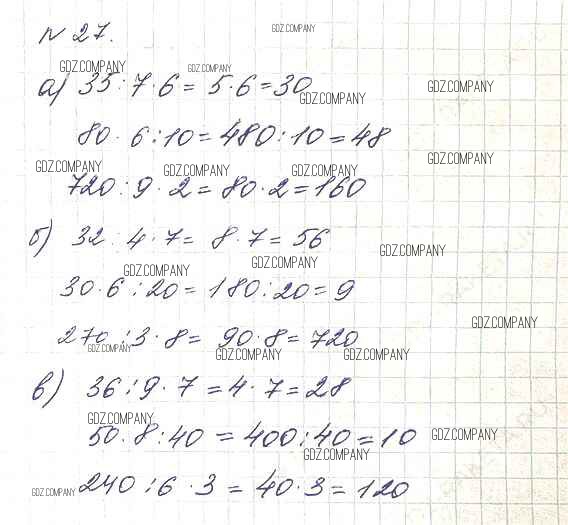 № 27.
GDZ.COMPANY
GDZ.COMPANY GDZ.COMPANY
а) 35 : 7 · 6 = 5 · 6 = 30
GDZ.COMPANY GDZ.COMPANY
80 · 6 : 10 = 480 : 10 = 48
GDZ.COMPANY GDZ.COMPANY GDZ.COMPANY GDZ.COMPANY
720 : 9 · 2 = 80 · 2 = 160
б) 32 : 4 · 7 = 8 · 7 = 56
GDZ.COMPANY GDZ.COMPANY GDZ.COMPANY
30 · 6 : 20 = 180 : 20 = 9
GDZ.COMPANY
270 : 3 · 8 = 90 · 8 = 720
GDZ.COMPANY GDZ.COMPANY GDZ.COMPANY
в) 36 : 9 · 7 = 4 · 7 = 28
GDZ.COMPANY
50 · 8 : 40 = 400 : 40 = 10
GDZ.COMPANY GDZ.COMPANY
GDZ.COMPANY
240 : 6 · 3 = 40 · 3 = 120